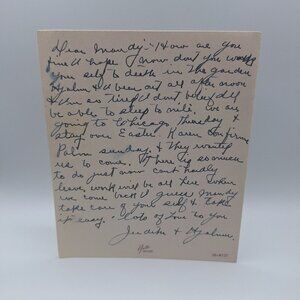 Dear Mandy! How are you
fine I hope & now don't you work
your self to death in the garden
Hjalmer & I been out all after noon
& I'm so tired I don't believe I'll
be able to sleep to nite. We are
going to Chicago Thursday &
stay over Easter. Karen confirm
Palm sunday & they wanted
us to come. There is so much
to do just now can't hardly
leave, work will be here when
we come back I guess. Mandy
take care of your self & take
it easy. Lots of love to you
Judith & Hjalmer.